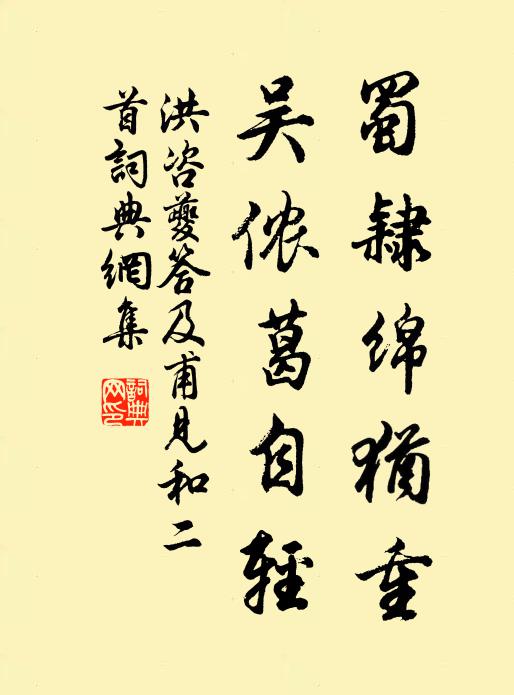 蜀隸綿猶重
吳侬葛自輕
洪咨夔答及甫見和二
首詞典網集
詞典
网印